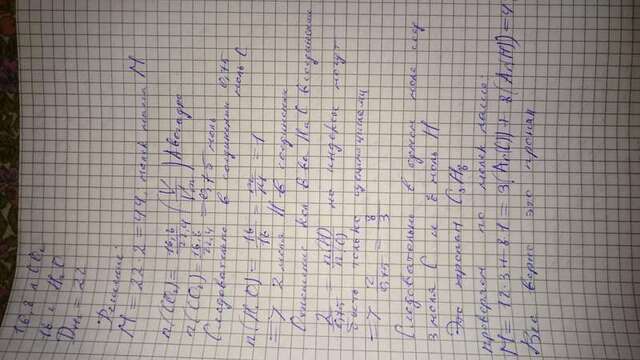 16,8 л CO₂
18 г H₂O
D H₂ = 22
Решение:
M = 22·2 = 44, молек масса M
n(CO₂) = 16,8/22,4 (V/Vm) Авогадро
n(CO₂) = 16,8/22,4 = 0,75 моль
Следовательно в соединении 0,75
моль C
n(H₂O) = 18/18 = m/M = 1
=> 2 моля H в соединении
Отношение кол в ва H и C в соединении
2/0,75 = n(H)/n(C) но индексы могут
быть только целочислами
=> 2/0,75 = 8/3
Следовательно в одном моле соед
3 моля C и 8 моль H
Это пропан C₃H₈
проверяем по молек массе:
M = 12·3+8·1 = 3(Ar(C)) + 8(Ar(H)) = 4
Все верно это пропан